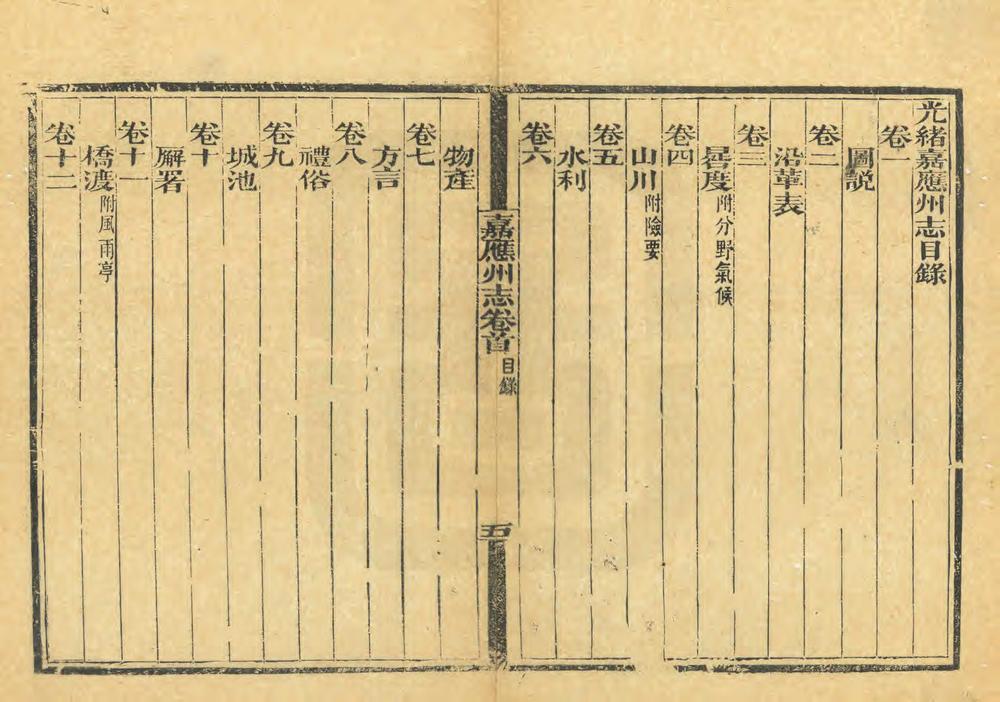 光緒嘉應州志目錄
卷一
圖說
卷二
沿革表
卷三
晷度附分野氣候
卷四
山川附險要
卷五
水利
卷六
嘉應州志卷首 目錄
五
物產
卷七
方言
卷八
禮俗
卷九
城池
卷十
廨署
卷十一
橋渡附風雨亭
卷十二